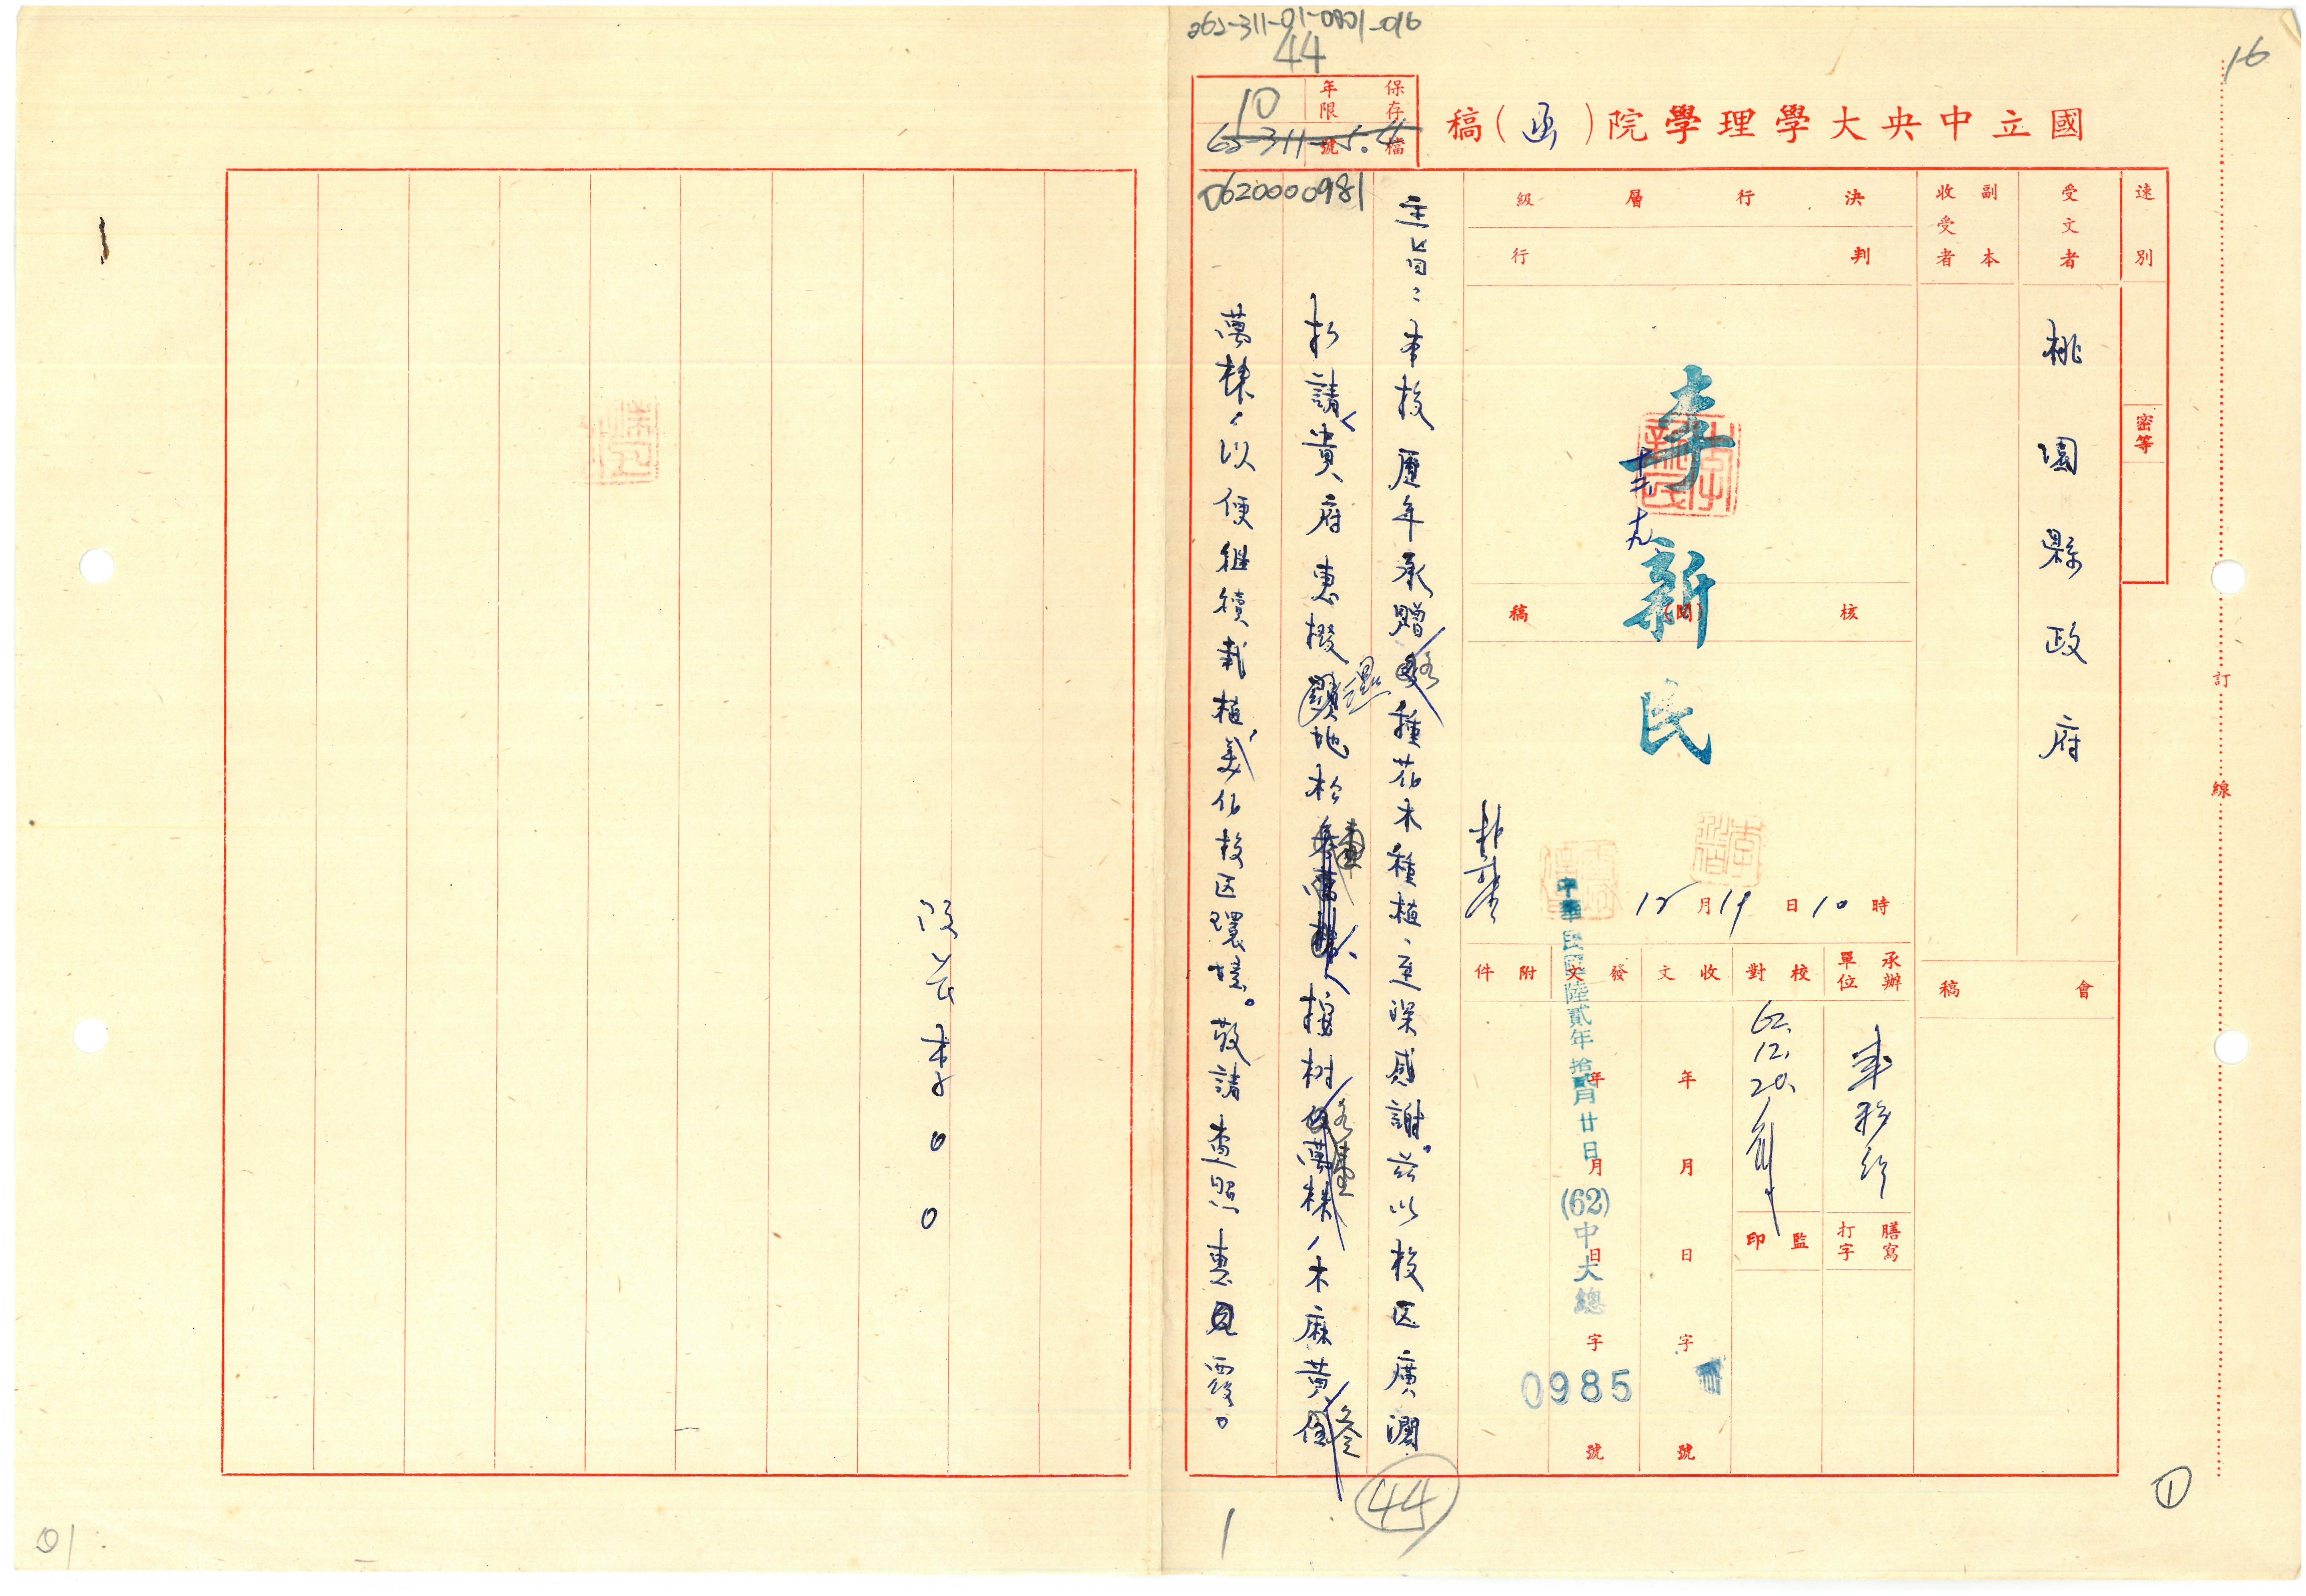 062-311-01-0801-016
44
16
國立中央大學理學院(函)稿
保存年限 10
檔號 62-311-5.4
0620000981
速別
密等
受文者
桃園縣政府
副本收受者
會稿
決行層級
判行
李新民
十二
十九
核(閱)稿
12月19日10時
承辦單位
校對
62.12.20.
收文
年月日字號
發文
年月日字號
中華民國陸貳年拾貳月廿日
(62)中大總
0985
附件
繕寫打字
監印
主旨:本校歷年承贈各種花木種植,至深感謝。茲以校区廣濶
擬請貴府惠撥濕地松壹萬株、樟树各壹萬株、木麻黃叁
萬株,以便繼續栽植,美化校区環境。敬請查照惠見覆。
院長李〇〇
訂
線
44
1
①
01